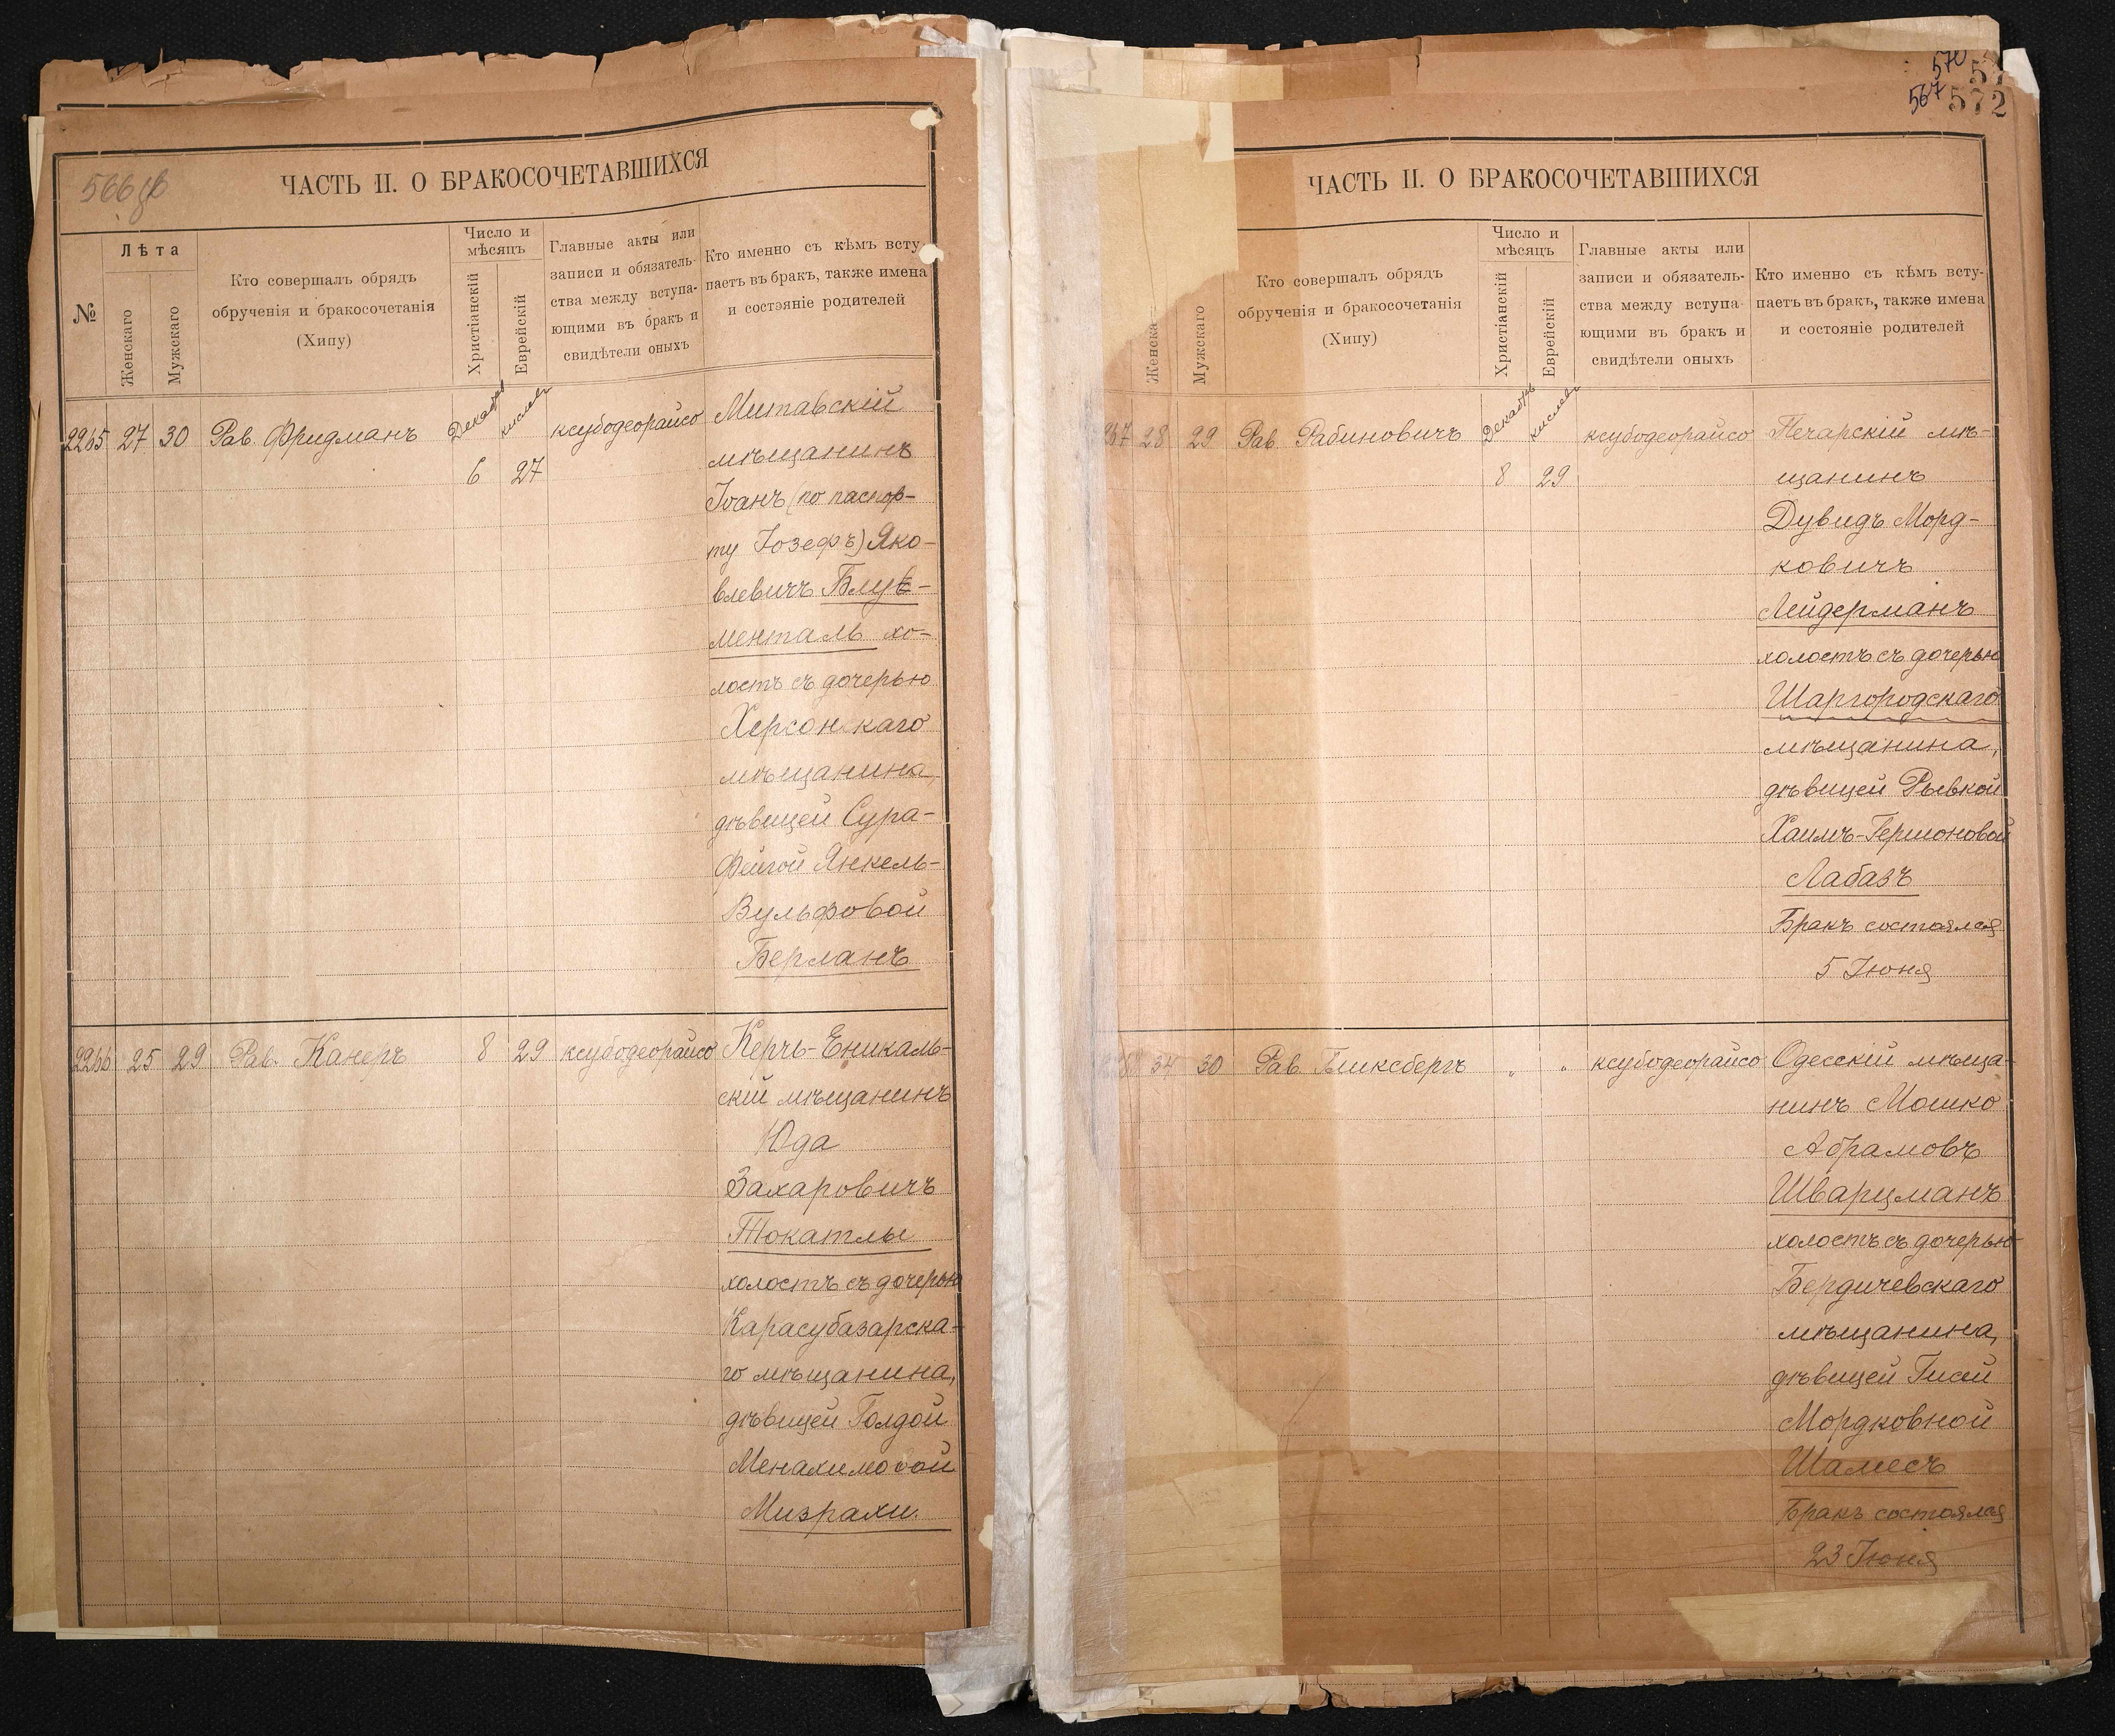 566 об
ЧАСТЬ II. О БРАКОСОЧЕТАВШИХСЯ
№
Лѣта
Женскаго
Мужскаго
Кто совершалъ обрядъ
обрученія и бракосочетанія
(Хипу)
Число и
мѣсяцъ
Христіанскій
Еврейскій
Главные акты или
записи и обязатель-
ства между вступа-
ющими въ бракъ и
свидѣтели оныхъ
Кто именно съ кѣмъ всту-
паетъ въ бракъ, также имена
и состэяніе родителей
2265 27 30 Рав. Фридманъ Декабрь кислевъ ксубодеорайсо Митавскій
6 27 мѣщанинъ
Іоанъ (по паспор-
ту Іозефъ) Яко-
влевичъ Блу-
менталь хо-
лостъ съ дочерью
Херсонскаго
мѣщанина,
дѣвицей Сура-
Фейгой Янкель-
Вульфовой
Берманъ
2266 25 29 Рав. Канеръ 8 29 ксубодеорайсо Керчь-Еникаль-
скій мѣщанинъ
Юда
Захаровичъ
Токатлы
холостъ съ дочерью
Карасубазарска-
го мѣщанина,
дѣвицей Голдой
Менахимовой
Мизрахи.
570
567 572
ЧАСТЬ II. О БРАКОСОЧЕТАВШИХСЯ
Женска
Мужскаго
Кто совершалъ обрядъ
обрученія и бракосочетанія
(Хипу)
Число и
мѣсяцъ
Христіанскій
Еврейскій
Главные акты или
записи и обязатель-
ства между вступа-
ющими въ бракъ и
свидѣтели оныхъ
Кто именно съ кѣмъ всту-
паетъ въ бракъ, также имена
и состояніе родителей
267 28 29 Рав. Рабиновичъ Декабрь кислевъ ксубодеорайсо Печарскій мѣ-
8 29 щанинъ
Дувидъ Морд-
ковичъ
Лейдерманъ
холостъ съ дочерью
Шаргородскаго
мѣщанина,
дѣвицей Рывкой
Хаимъ-Гершоновой
Лабазъ
Бракъ состоялся
5 Іюня
34 30 Рав. Бликсбергъ " " ксубодеорайсо Одесскій мѣща-
нинъ Мошко
Абрамовъ
Шварцманъ
холостъ съ дочерью
Бердичевскаго
мѣщанина,
дѣвицей Гисей
Мордковной
Шамесъ
Бракъ состоялся
23 Іюня